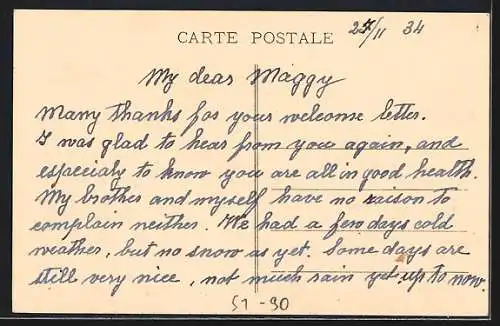 CARTE POSTALE
25/11 34
My dear Maggy
Many thanks for your welcome letter.
I was glad to hear from you again, and
especialy to know you are all in good health.
My brother and myself have no raison to
complain neither. We had a few days cold
weather, but no snow as yet. Some days are
still very nice, not much rain yet up to now.
51-90